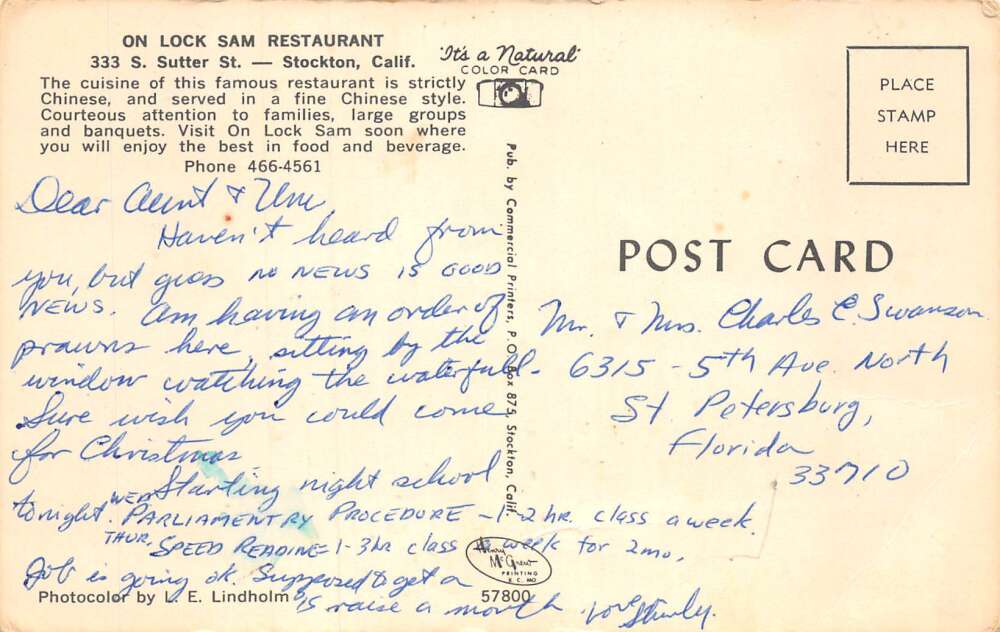 ON LOCK SAM RESTAURANT
333 S. Sutter St. — Stockton, Calif.
The cuisine of this famous restaurant is strictly
Chinese, and served in a fine Chinese style.
Courteous attention to families, large groups
and banquets. Visit On Lock Sam soon where
you will enjoy the best in food and beverage.
Phone 466-4561
It's a Natural
COLOR CARD
PLACE
STAMP
HERE
Pub. by Commercial Printers, P. O. Box 875, Stockton, Calif.
POST CARD
Dear Aunt &
Haven't heard from
you, but guess no NEWS IS GOOD
NEWS. Am having an order of
prawns here, sitting by the
window watching the waterfall.
Sure wish you could come
for Christmas
Starting night school
tonight. WED PARLIAMENTRY PROCEDURE - 1-2 hr. class a week.
THUR. SPEED READING = 1-3 hr class week for 2 mo.
Job is going ok. Supposed to get a
raise a month. Love
Mr. & Mrs. Charles C. Swanson
6315 - 5th Ave. North
St. Petersburg,
Florida
33710
Henry
McGrew
PRINTING
K. C. MO
Photocolor by L. E. Lindholm
57800